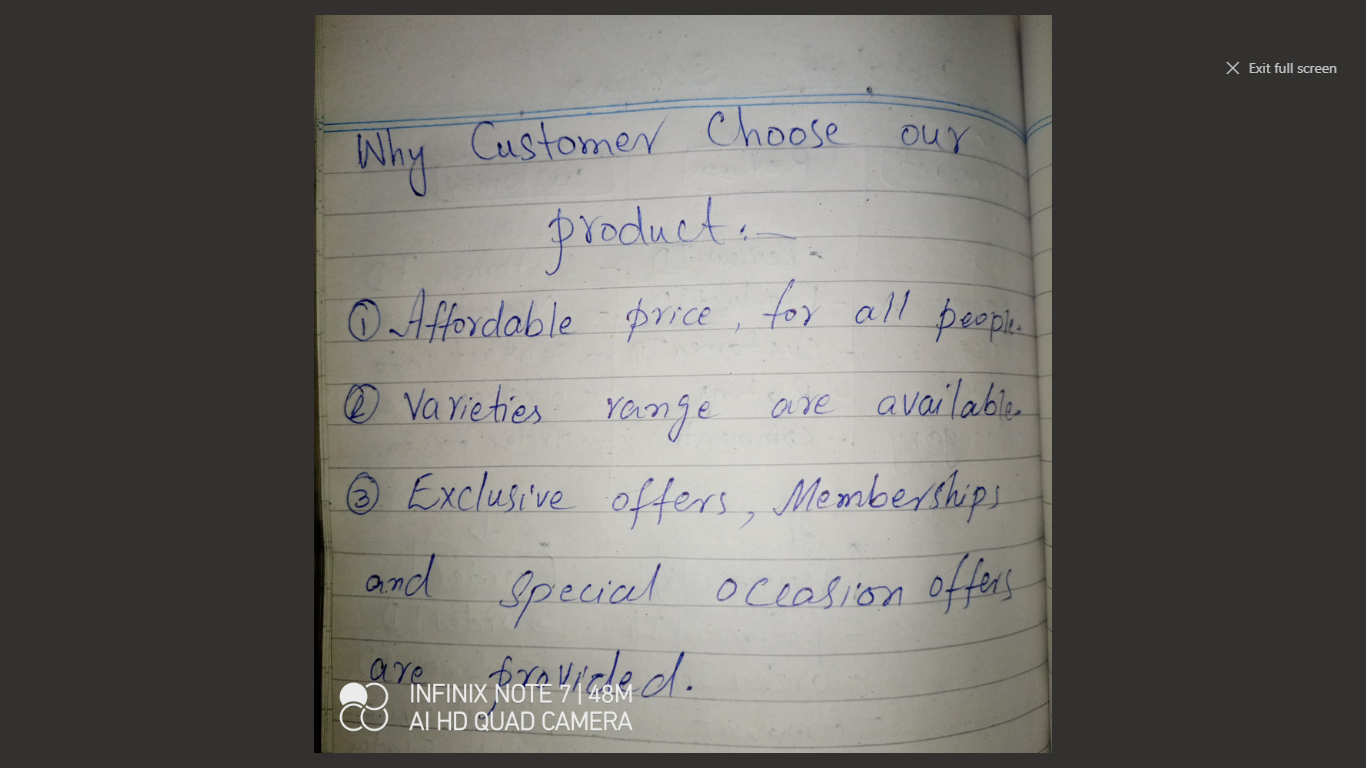 Exit full screen
Why Customer Choose our
product :-
① Affordable price, for all people.
② Varieties range are available.
③ Exclusive offers, Memberships
and special occasion offers
are provided.
INFINIX NOTE 7 | 48M
AI HD QUAD CAMERA